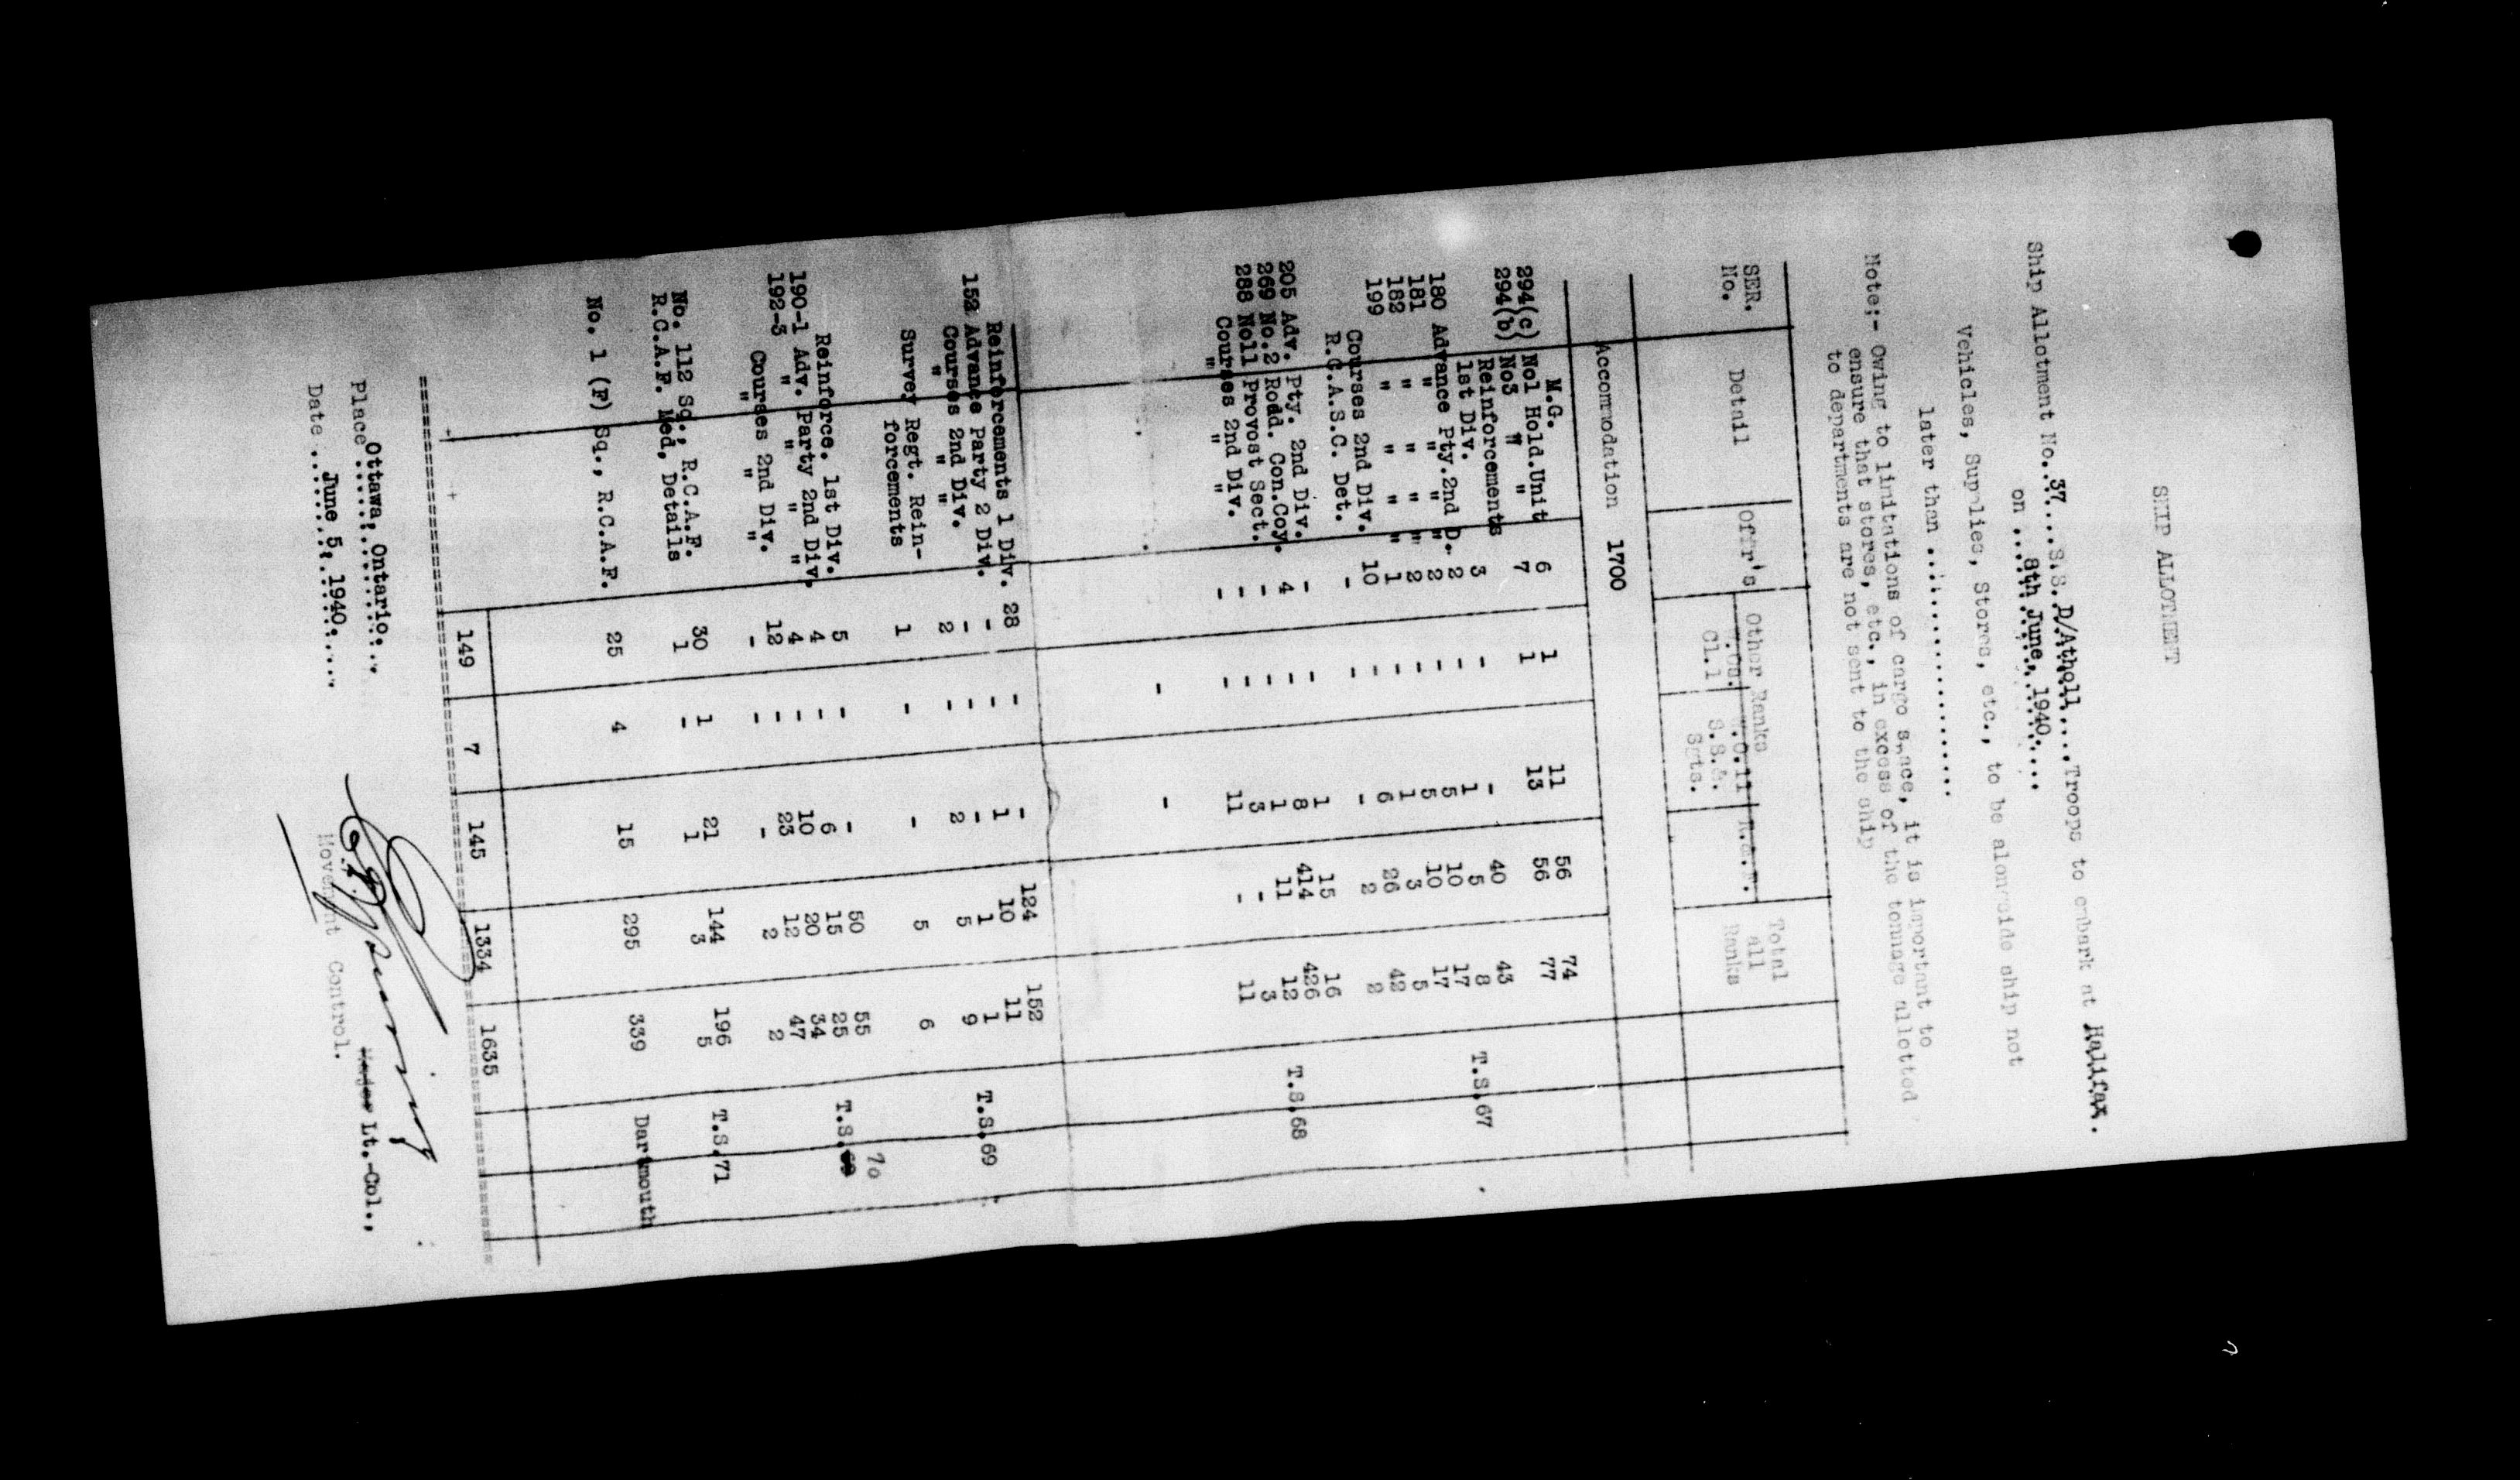 SHIP ALLOTMENT
Ship Allotment No..37....S.S. D/Atholl....Troops to embark at Halifax.
on ...8th June, 1940......
Vehicles, Supplies, Stores, etc., to be alongside ship not
later than ....................
Note:- Owing to limitations of cargo space, it is important to
ensure that stores, etc., in excess of the tonnage allotted
to departments are not sent to the ship
SER. No. Detail Offr's Other Ranks Total all Ranks
W.Os. Cl.1 W.O.11 S.S.M. Sgts. R.&.F.
Accommodation 1700
M.G.
294(c) No1 Hold.Unit 6 1 11 56 74
294(b) No3 " " 7 1 13 56 77
Reinforcements
1st Div. 3 - - 40 43 T.S.67
180 Advance Pty.2nd D. 2 - 1 5 8
181 " " " 2 - 5 10 17
182 " " " " 2 - 5 10 17
199 " " " " 1 - 1 3 5
Courses 2nd Div. 10 - 6 26 42
R.C.A.S.C. Det. - - - 2 2
205 Adv. Pty. 2nd Div. - - 1 15 16
269 No.2 Road. Con.Coy. 4 - 8 414 426 T.S.68
288 No11 Provost Sect. - - 1 11 12
Courses 2nd Div. - - 3 - 3
" " " - - 11 - 11
- -
Reinforcements 1 Div. 28 - - 124 152
152 Advance Party 2 Div. - - 1 10 11
Courses 2nd Div. - - - 1 1 T.S.69
" " " 2 - 2 5 9
Survey Regt. Rein-
forcements 1 - - 5 6
Reinforce. 1st Div. 5 - - 50 55 T.S. 70
190-1 Adv. Party 2nd Div. 4 - 6 15 25
192-3 " " " 4 - 10 20 34
Courses 2nd Div. 12 - 23 12 47
" " - - - 2 2
No. 112 Sq., R.C.A.F. 30 1 21 144 196 T.S.71
R.C.A.F. Med. Details 1 - 1 3 5
No. 1 (F) Sq., R.C.A.F. 25 4 15 295 339 Dartmouth
149 7 145 1334 1635
Place Ottawa, Ontario.
Date June 5, 1940.
Major Lt.-Col.,
Movement Control.